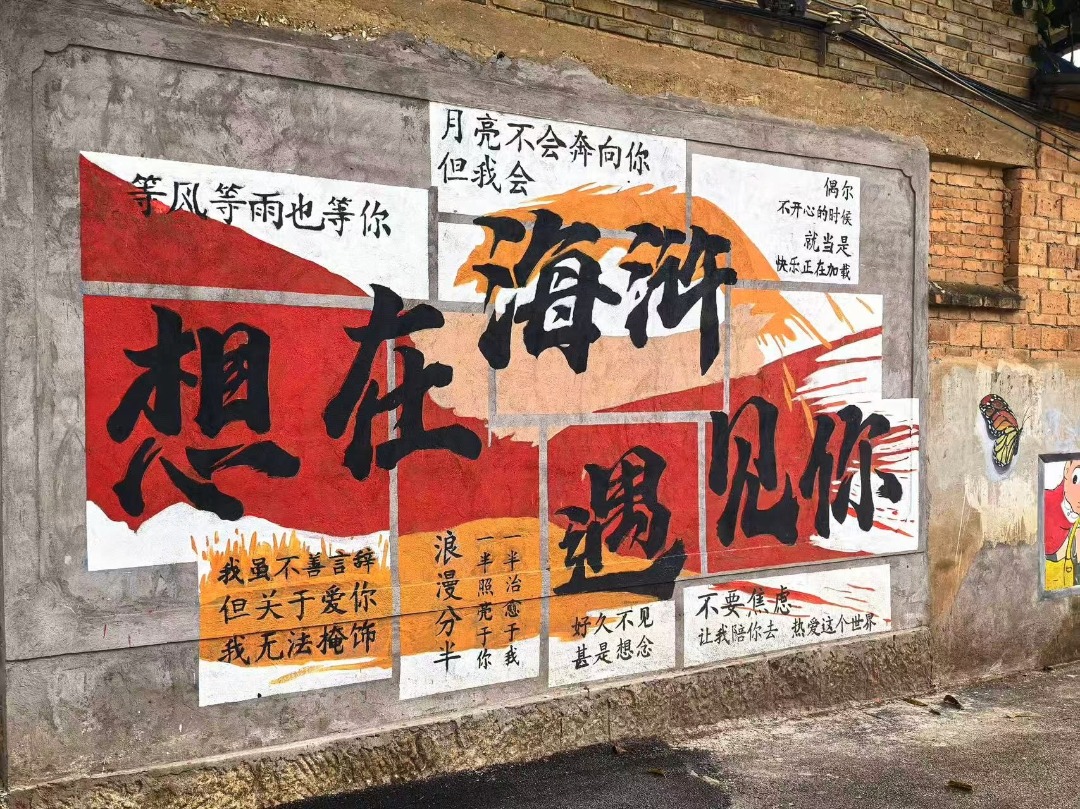 等风等雨也等你
月亮不会奔向你
但我会
偶尔
不开心的时候
就当是
快乐正在加载
想在海浒遇见你
我虽不善言辞
但关于爱你
我无法掩饰
浪漫分半
一半照亮于你
一半治愈于我
好久不见
甚是想念
不要焦虑
让我陪你去 热爱这个世界